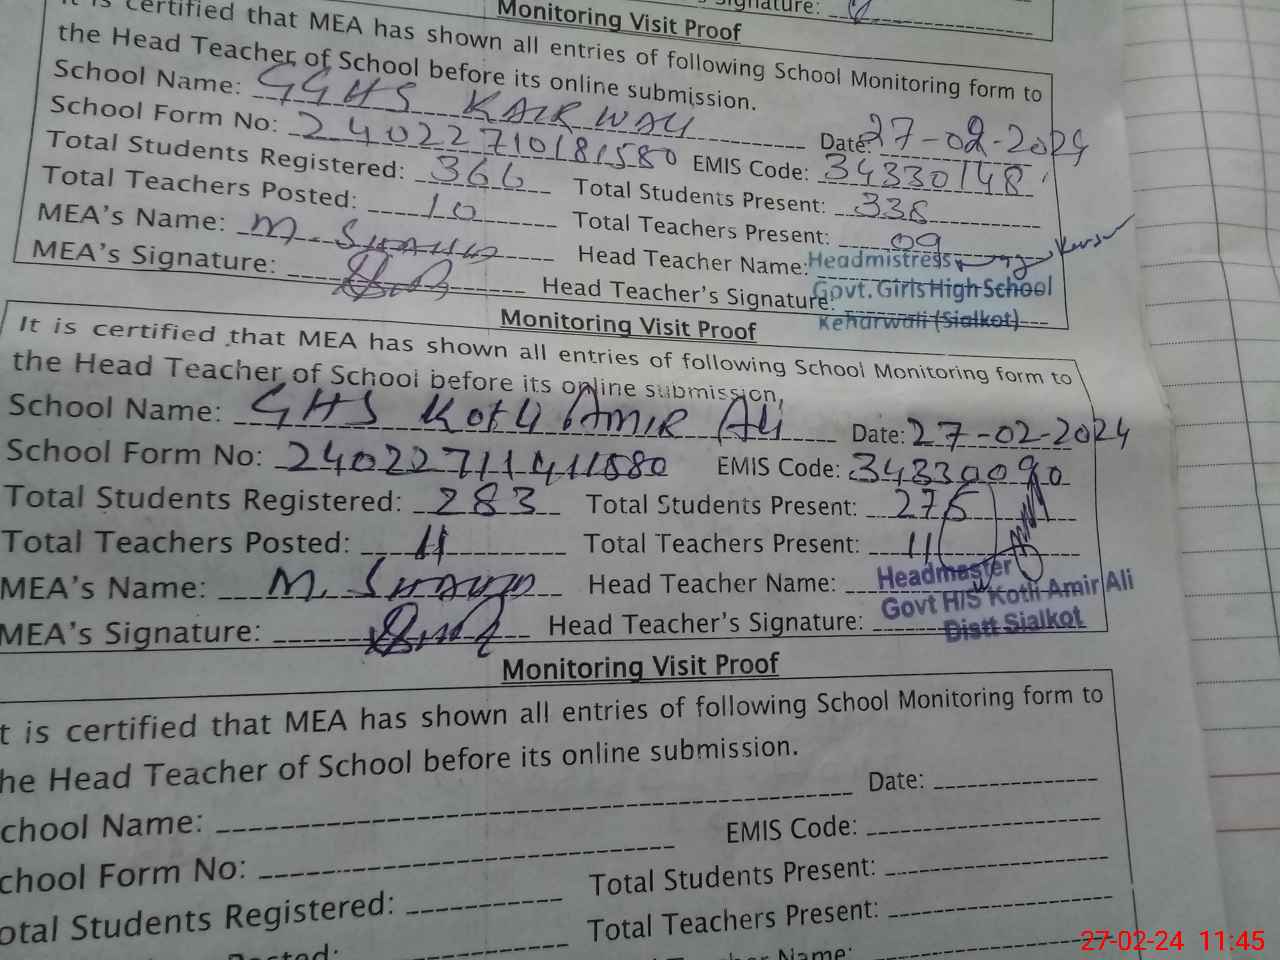 Signature:
Monitoring Visit Proof
It is certified that MEA has shown all entries of following School Monitoring form to
the Head Teacher of School before its online submission.
School Name: GGHS KAIRWALI Date: 27-02-2024
School Form No: 24022710181580 EMIS Code: 34330148
Total Students Registered: 366 Total Students Present: 338
Total Teachers Posted: 10 Total Teachers Present: 09
MEA's Name: M. Head Teacher Name: Headmistress
MEA's Signature: Head Teacher's Signature: Govt. Girls High School
Keharwali (Sialkot)
Monitoring Visit Proof
It is certified that MEA has shown all entries of following School Monitoring form to
the Head Teacher of School before its online submission,
School Name: GHS Kotli Amir Ali Date: 27-02-2024
School Form No: 240227111411580 EMIS Code: 34330090
Total Students Registered: 283 Total Students Present: 275
Total Teachers Posted: 11 Total Teachers Present: 11
MEA's Name: M. Head Teacher Name: Headmaster
Govt H/S Kotli Amir Ali
MEA's Signature: Head Teacher's Signature: Distt Sialkot
Monitoring Visit Proof
t is certified that MEA has shown all entries of following School Monitoring form to
he Head Teacher of School before its online submission.
chool Name: Date:
chool Form No: EMIS Code:
otal Students Registered: Total Students Present:
Posted: Total Teachers Present:
Name:
27-02-24 11:45